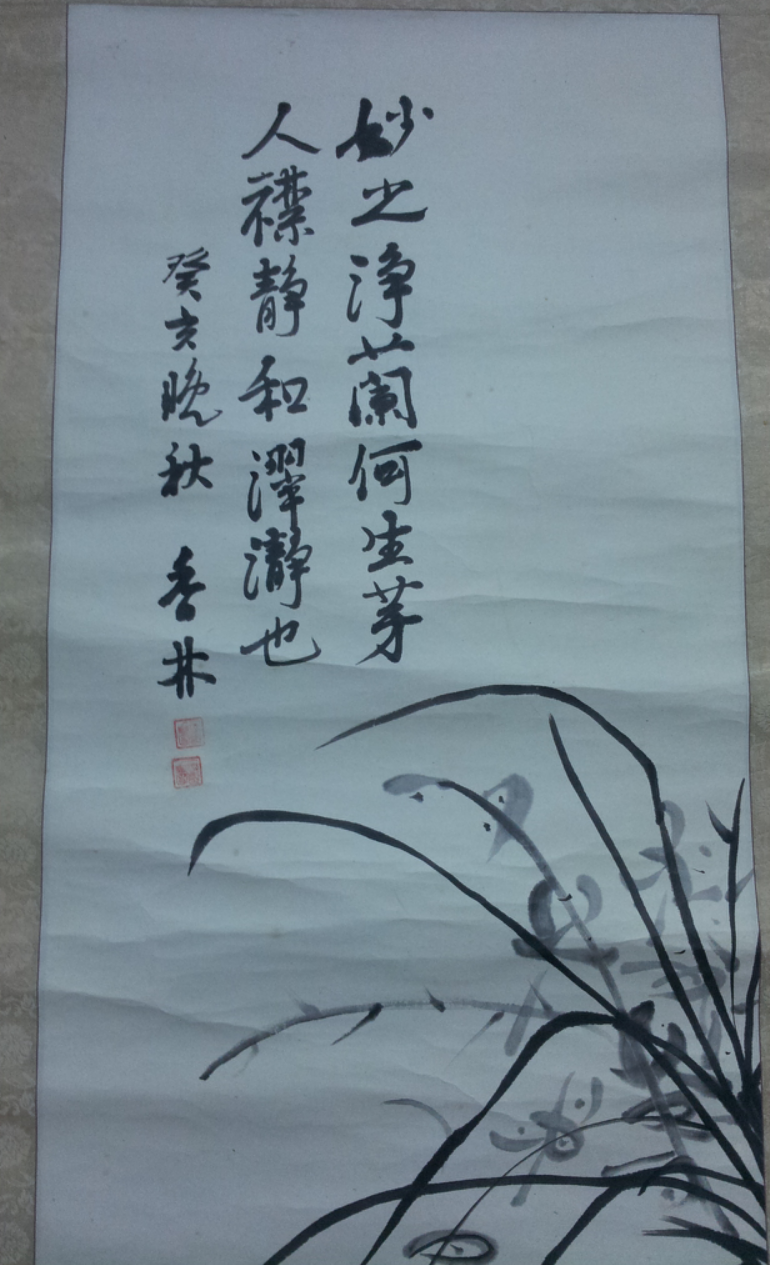 妙之淨蘭何生芽
人襟静和澤瀞也
癸亥晚秋 香林